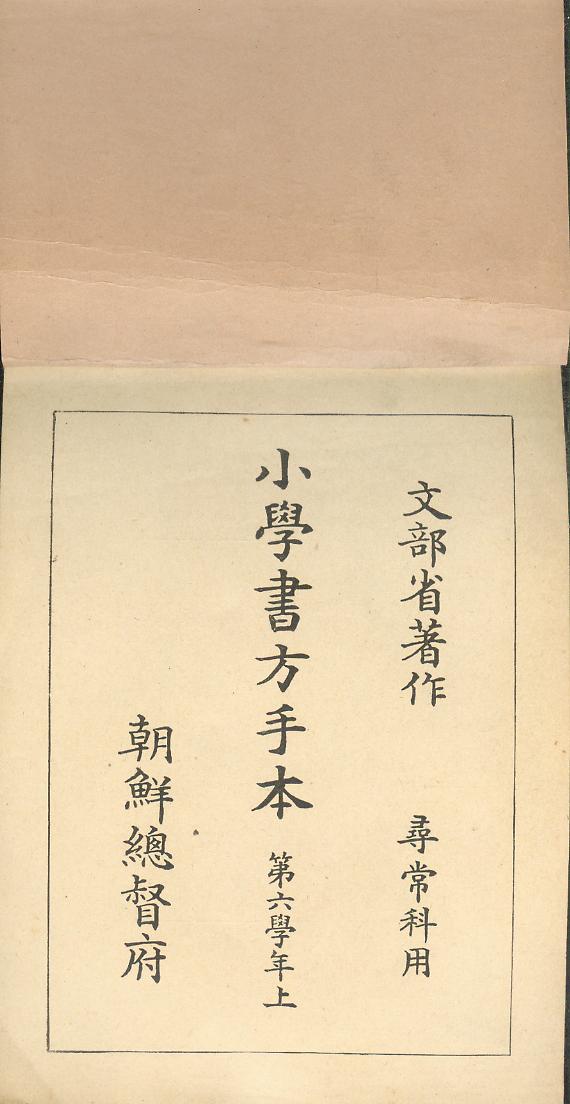 文部省著作　尋常科用
小學書方手本　第六學年上
朝鮮總督府